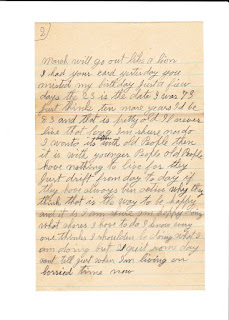 2)
March will go out like a lion
I had your card yesterday you
missed my birthday just a few
days the 23 is the date I was 73
Just think ten more years I'd be
83 and that is pretty old I'll never
live that long I'm sure no do
I want to its with old People then
it is with younger People old People
have nothing to live for they
just drift from day to day if
they have always bin active they
think that is the way to be happy
and it is I am quite one happy doing
what chores I have to do I know every
one thinks I shouldn be doing what I
am doing but I quit some day
and tell just when I'm living on
borried time now